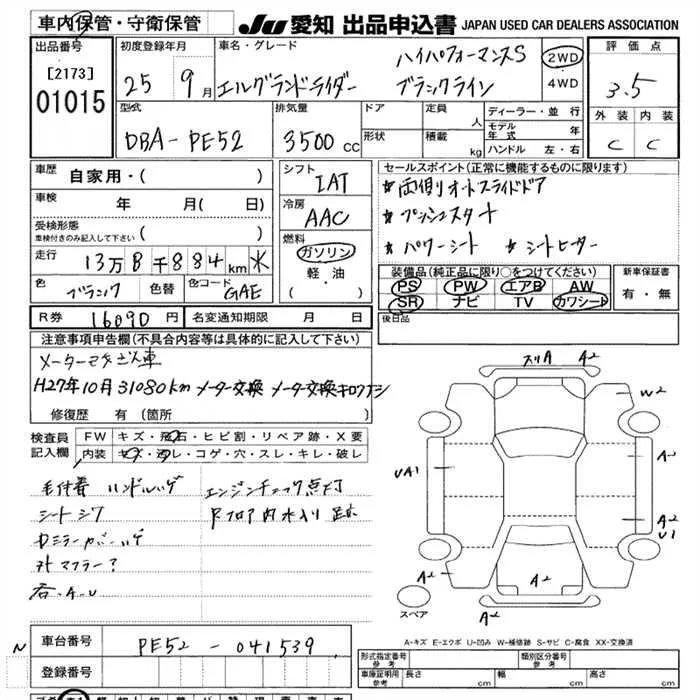 車内保管・守衛保管 JU 愛知 出品申込書 JAPAN USED CAR DEALERS ASSOCIATION
出品番号
[2173]
01015
初度登録年月
25 9月
車名・グレード
エルグランドライダー
ハイパフォーマンスS
ブラックライン
2WD
・
4WD
評価点
3.5
外装 内装
C C
型式
DBA-PE52
排気量
3500 cc
ドア
形状
定員 人
積載 kg
ディーラー・並行
モデル年式 年
ハンドル 左・右
車歴
自家用・( )
車検 年 月( 日)
受検形態
車検付きのみ記入して下さい ( )
走行 13万8千884km
色 ブラック 色替 色コード GAE
シフト
IAT
冷房
AAC
燃料
ガソリン
軽・油
( )
セールスポイント(正常に機能するものに限ります)
★両側オートスライドドア
★プッシュスタート
★パワーシート ★シートヒーター
装備品(純正品に限り○をつけてください)
PS PW エアB AW
SR ナビ TV カワシート
新車保証書
有・無
R券 16090円 名変通知期限 月 日
後日品
注意事項申告欄(不具合内容等は具体的に記入して下さい)
メーター改ざん車
H27年10月31080km メーター交換 メーター交換キロクナシ
修復歴 有(箇所
検査員
記入欄
FW キズ・飛石・ヒビ割・リペア跡・X要
内装 キズ・汚レ・コゲ・穴・スレ・キレ・破レ
毛付着 ハンドルハゲ エンジンチェック点灯
シートシワ Rフロア内水入り跡
マフラー?
スリA A2
W2
A2
UA1
A2
U1
A2
A2
A2
スペア
A2
A-キズ E-エクボ U-凹み W-補修跡 S-サビ C-腐食 XX-交換済
N
車台番号 PE52-041539
登録番号
形式指定番号
参考
類別区分番号
参考
車庫証明用
参考
長さ cm 幅 cm 高さ cm